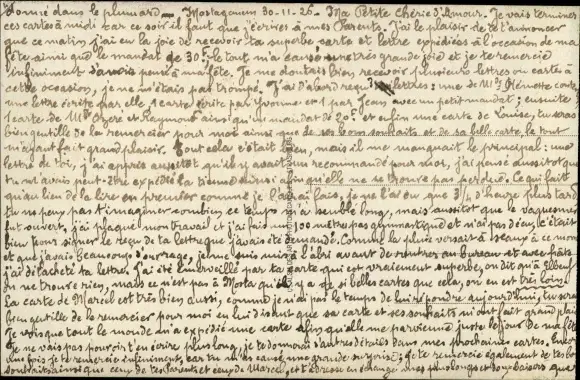 donné dans le plumard — Mostaganem 30-11-26 — Ma Petite Chérie d'Amour. Je vais terminer
ces cartes à midi car ce soir il faut que j'écrive à mes Parents. J'ai le plaisir de te l'annoncer
que ce matin j'ai eu la joie de recevoir ta superbe carte et lettre expédiées à l'occasion de ma
fête ainsi que le mandat de 30f; le tout m'a causé une très grande joie et je te remercie
infiniment d'avoir pensé à ma fête. Je me doutais bien recevoir plusieurs lettres ou cartes à
cette occasion, je ne m'étais pas trompé. J'ai d'abord reçu lettres: une de Mlle
une lettre écrite par elle, 1 carte écrite par Yvonne et 1 par Jean avec un petit mandat; ensuite
1 carte de Mr et Reymond ainsi qu'un mandat de 20f et enfin une carte de Louise, tu seras
bien gentille de la remercier pour moi ainsi que de ses bons souhaits et de sa belle carte, le tout
m'ayant fait grand plaisir. Tout cela c'était bien, mais il me manquait le principal: une
lettre de toi, j'ai appris aussitôt qu'il y avait un recommandé pour moi, j'ai pensé aussitôt que
tu m'avais peut-être expédié la tienne ainsi afin qu'elle ne se trouve pas perdue. Ce qui fait
qu'au lieu de la lire en premier comme je l'aurai fais, je ne l'ai eu que 3/4 d'heure plus tard,
tu ne peux pas t'imaginer combien ce temps m'a semblé long, mais aussitôt que le vaguemestre
fut ouvert, j'ai plaqué mon travail et j'ai fais un 100 mètres pas gymnastique et n'ai pas déçu, c'était
bien pour signer le reçu de ta lettre que j'avais été demandé. Comme la pluie versait à seaux à ce moment
et que j'avais beaucoup d'ouvrage, je me suis mis à l'abri avant de rentrer au bureau et avec hâte
j'ai détaché ta lettre. J'ai été émerveillé par ta carte qui est vraiment superbe, on dit qu'à Elbeuf
on ne trouve rien, mais ce n'est pas à Mosta qu'il y a de si belles cartes que cela, on en est très loin.
La carte de Marcel est très bien aussi, comme je n'ai pas le temps de lui répondre aujourd'hui, tu seras
bien gentille de le remercier pour moi en lui disant que sa carte et ses souhaits m'ont fait grand plaisir.
Je vois que tout le monde m'a expédié une carte afin qu'elle me parvienne juste le jour de ma fête.
Je ne vais pas pouvoir t'en écrire plus long, je te donnerai d'autres détails dans mes prochaines cartes. Encore
une fois je te remercie infiniment, car tu m'as causé une grande surprise; je te remercie également de tes bons
souhaits ainsi que ceux de tes Parents et ceux de Marcel, et t'adresse en échange mes plus longs et doux baisers que